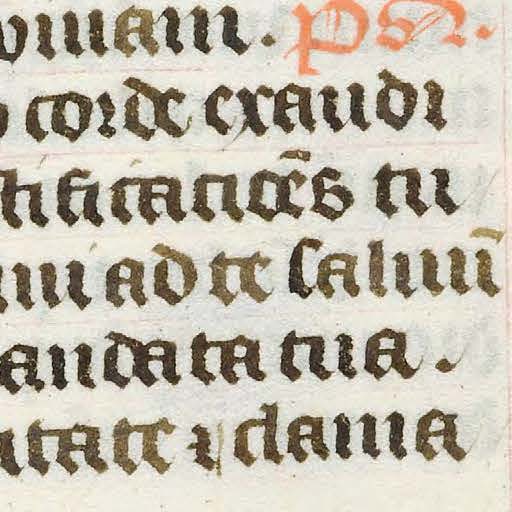 viuam. ps.
o corde exaudi
tificatiōes tu
aui ad te saluū
andata tua.
itate ⁊ clama